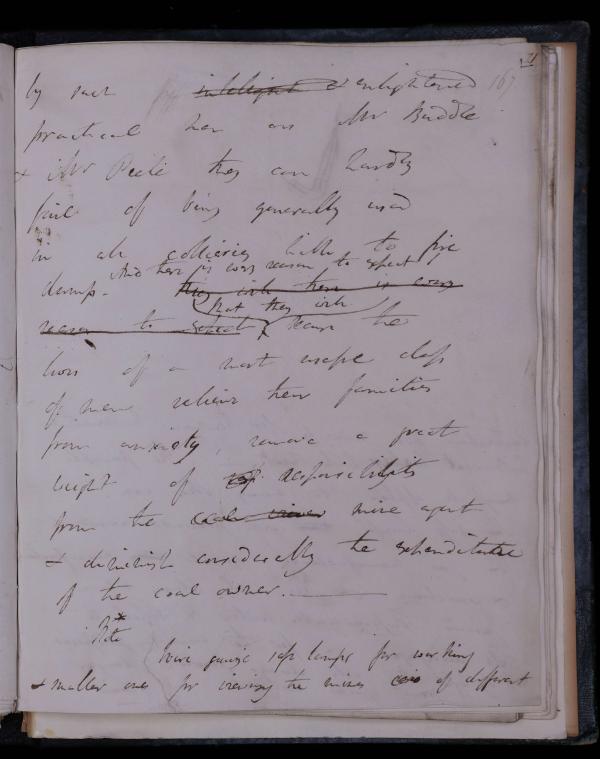 71
by such intelligent & enlightened 167
practical men as Mr Buddle
& Mr Peele they can hardly
fail of being generally used
in all collieries liable to fire
And there is every reason to expect
damp. they will there is every
that they will
reason to expect secure the
lives of a most useful class
of men relieve their families
from anxiety, remove a great
weight of responsibility
from the coal viewer mine agent
& diminish considerably the expenditure
of the coal owner.
*
Note
Wire gauze safe lamps for working
& smaller ones for viewing the mines of different